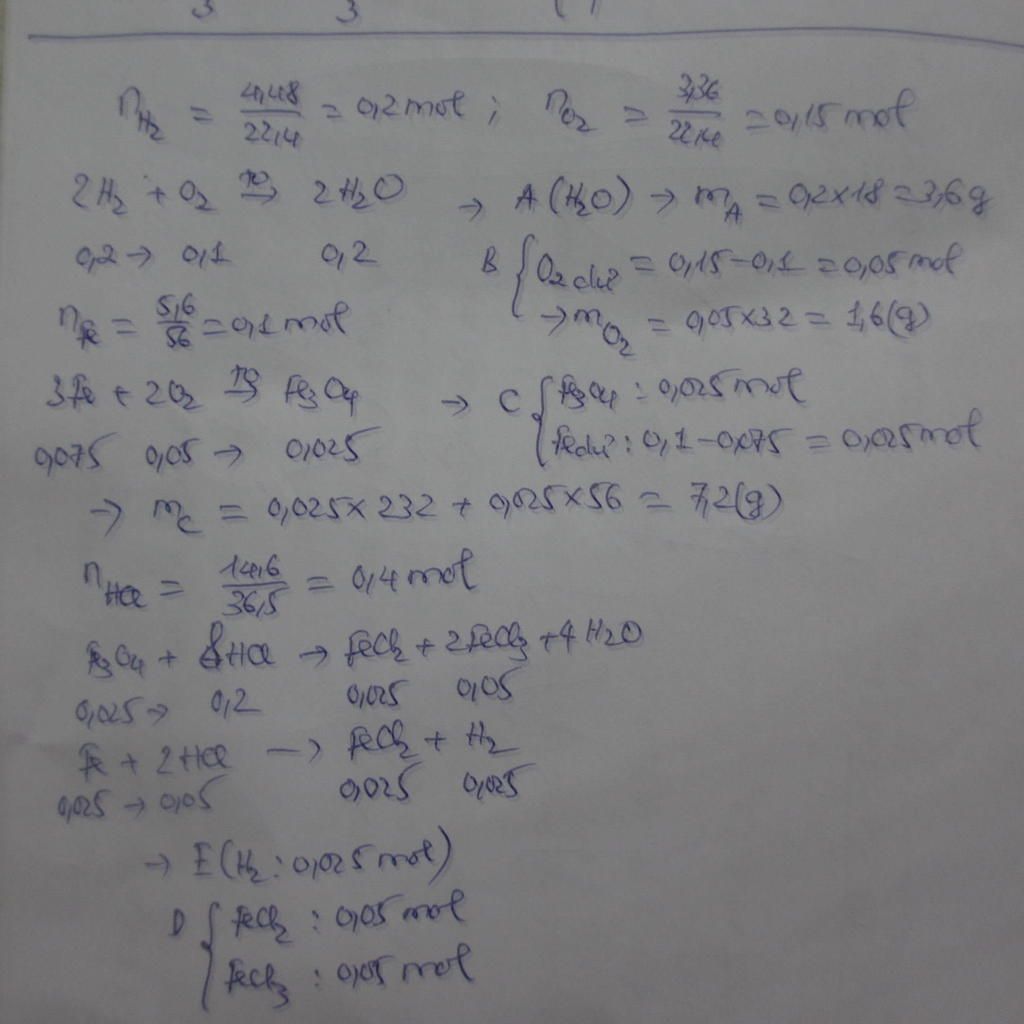 n_H₂ = 4,48/22,4 = 0,2 mol ; n_O₂ = 3,36/22,4 = 0,15 mol
2H₂ + O₂ →(t⁰) 2H₂O → A (H₂O) → m_A = 0,2×18 = 3,6g
0,2 → 0,1 0,2
B { O₂ dư = 0,15-0,1 = 0,05 mol
→ m_O₂ = 0,05×32 = 1,6(g)
n_Fe = 5,6/56 = 0,1 mol
3Fe + 2O₂ →(t⁰) Fe₃O₄ → C { Fe₃O₄ : 0,025 mol
Fe dư : 0,1-0,075 = 0,025 mol
0,075 0,05 → 0,025
→ m_C = 0,025×232 + 0,025×56 = 7,2(g)
n_HCl = 14,6/36,5 = 0,4 mol
Fe₃O₄ + 8HCl → FeCl₂ + 2FeCl₃ + 4H₂O
0,025 → 0,2 0,025 0,05
Fe + 2HCl → FeCl₂ + H₂
0,025 → 0,05 0,025 0,025
→ E (H₂ : 0,025 mol)
D { FeCl₂ : 0,05 mol
FeCl₃ : 0,05 mol